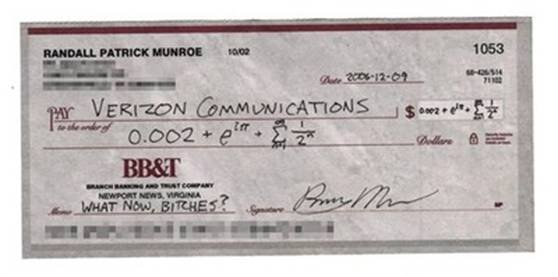 RANDALL PATRICK MUNROE 10/02 1053
68-426/514
71102
Date 2006-12-09
PAY to the order of VERIZON COMMUNICATIONS $ 0.002 + e^{iπ} + ∑_{n=1}^{∞} 1/2^n
0.002 + e^{iπ} + ∑_{n=1}^{∞} 1/2^n Dollars
BB&T
BRANCH BANKING AND TRUST COMPANY
NEWPORT NEWS, VIRGINIA
Memo WHAT NOW, BITCHES? Signature
MP